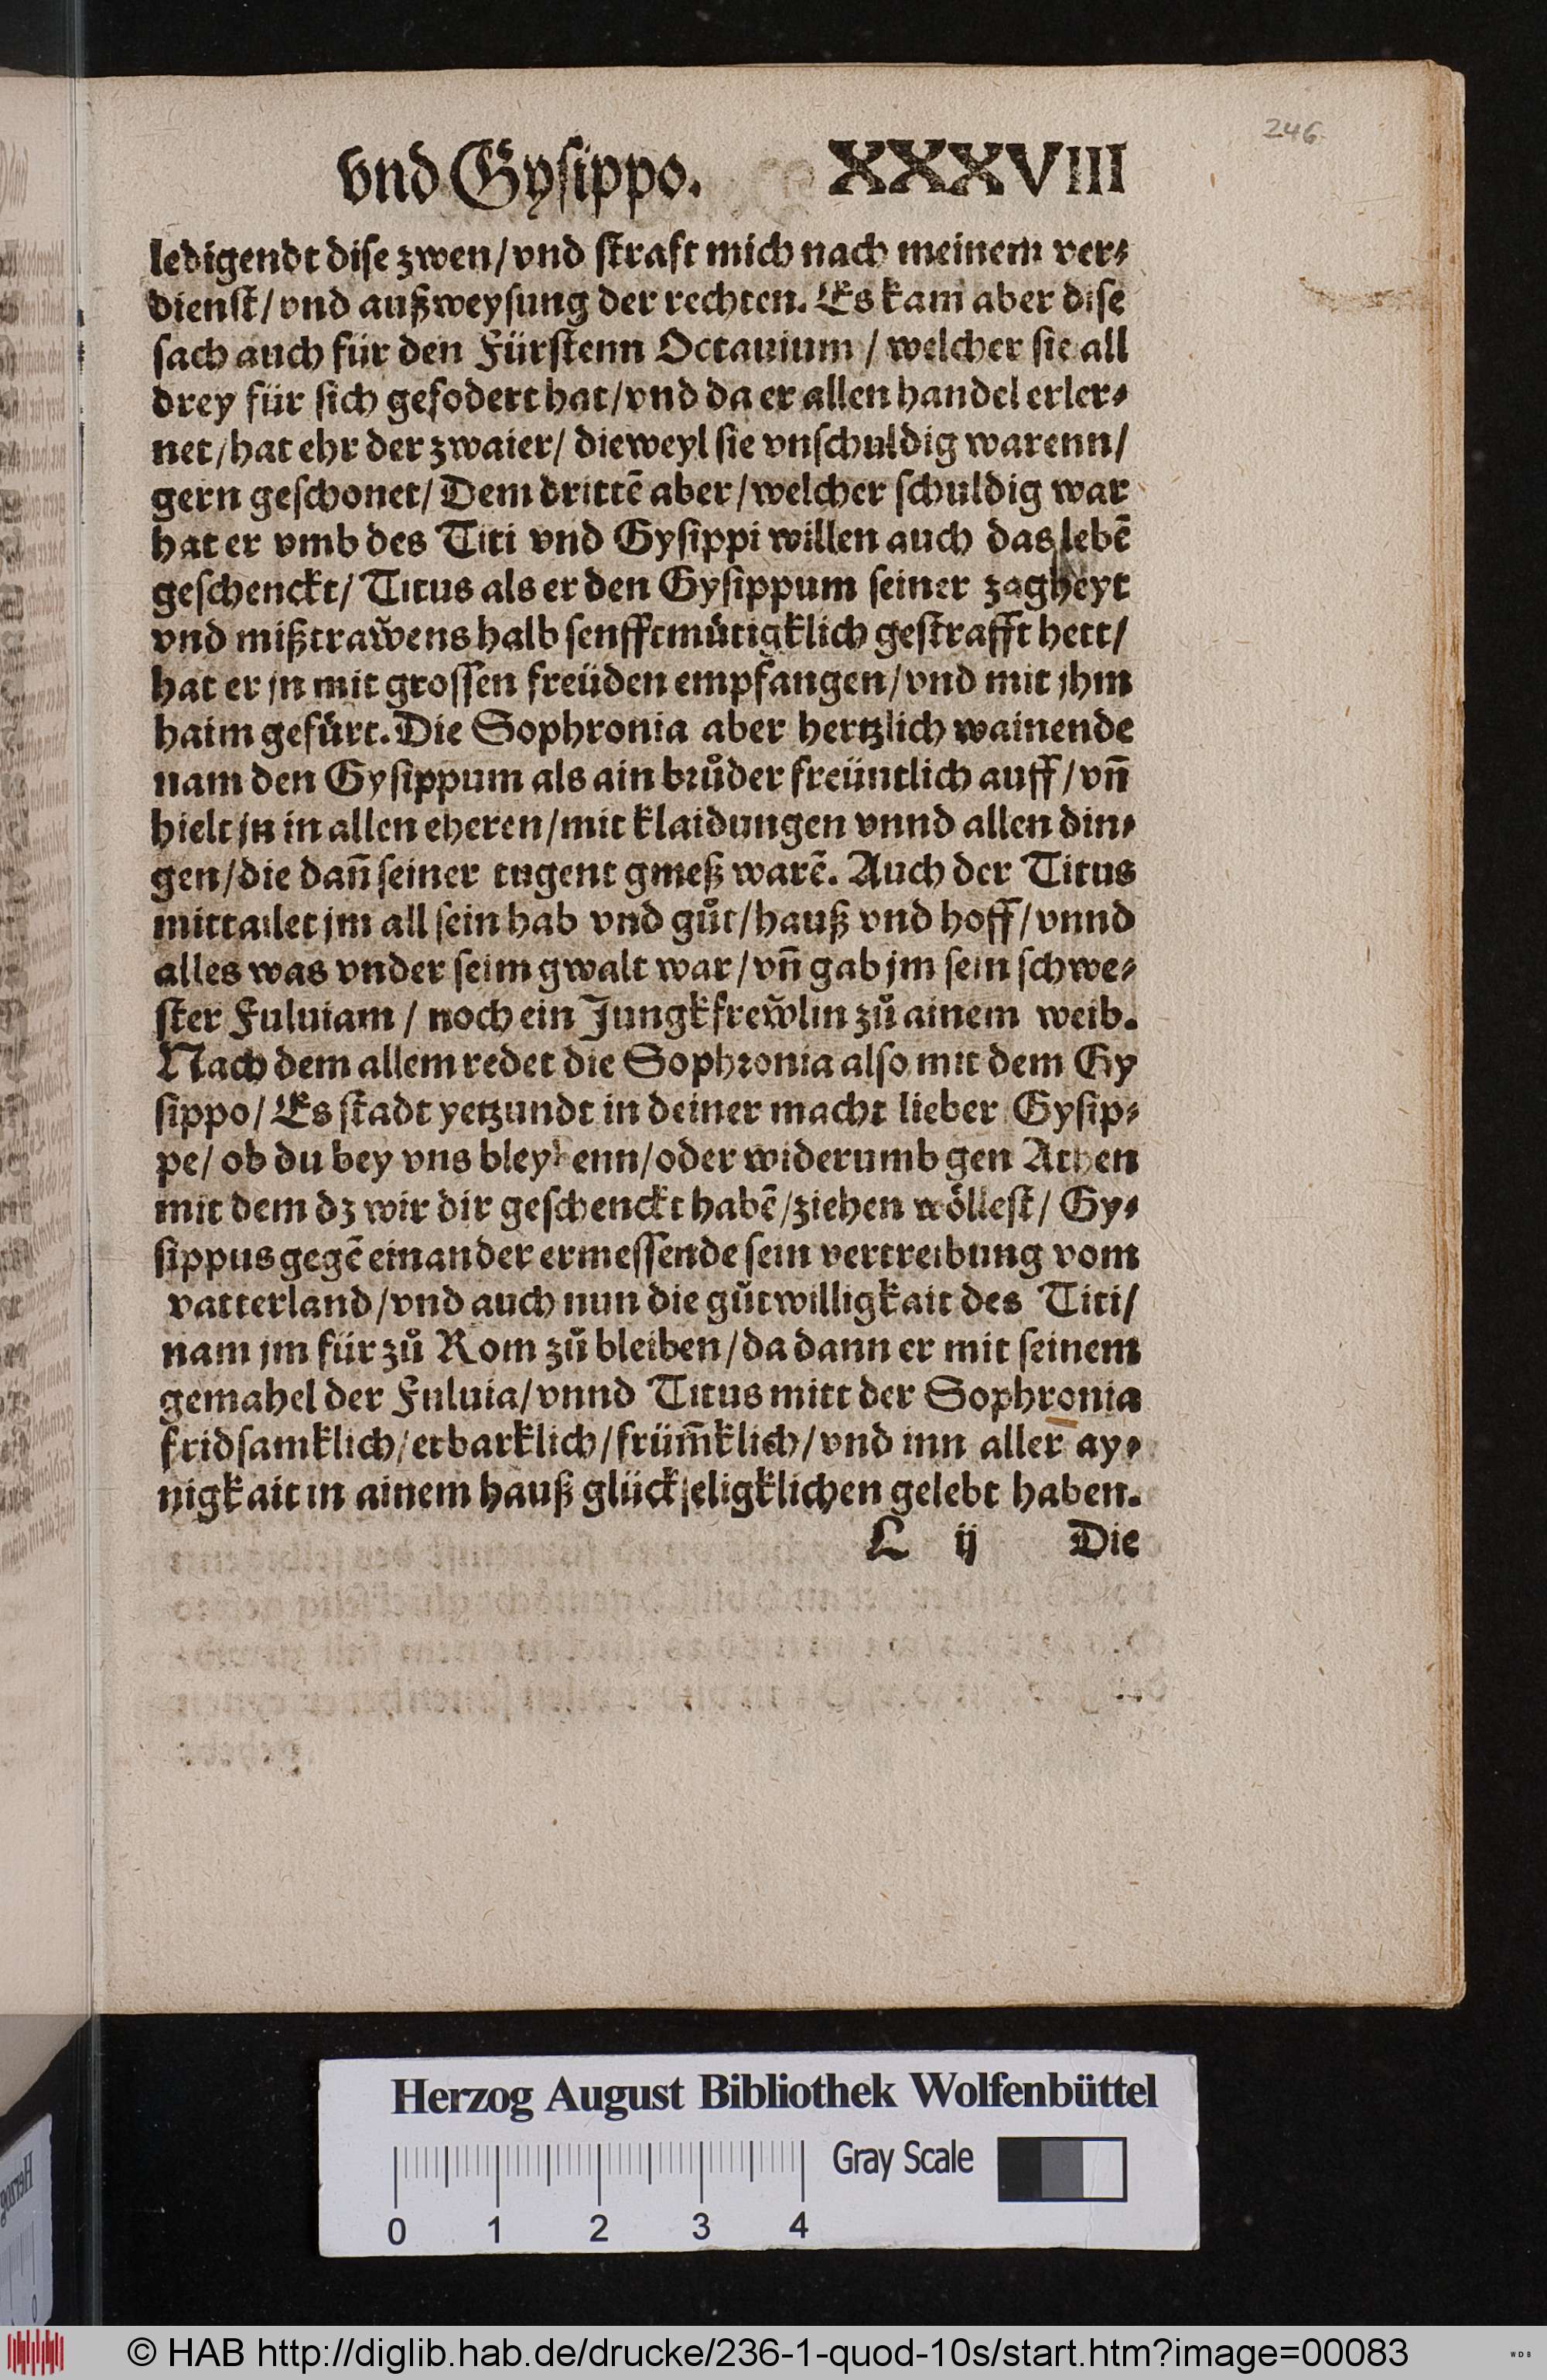 246
vnd Gyſippo. XXXVIII
ledigendt diſe zwen/vnd ſtraft mich nach meinem ver⸗
dienſt/vnd außweyſung der rechten. Es kam aber diſe
ſach auch für den Fürſtenn Octauium / welcher ſie all
drey für ſich gefodert hat/vnd da er allen handel erler⸗
net/hat ehr der zwaier/ dieweyl ſie vnſchuldig warenn/
gern geſchonet/ Dem drittē aber/welcher ſchuldig war
hat er vmb des Titi vnd Gyſippi willen auch das lebē
geſchenckt/ Titus als er den Gyſippum ſeiner zagheyt
vnd mißtraw̆ens halb ſenfftmütigklich geſtrafft hett/
hat er jn mit groſſen freüden empfangen/vnd mit jhm
haim gefürt. Die Sophronia aber hertzlich wainende
nam den Gyſippum als ain brůder freüntlich auff/vn̄
hielt jn in allen eheren/mit klaidungen vnnd allen din⸗
gen/die dan̄ ſeiner tugent gmeß warē. Auch der Titus
mittailet jm all ſein hab vnd gůt/hauß vnd hoff/vnnd
alles was vnder ſeim gwalt war/vn̄ gab jm ſein ſchwe⸗
ſter Fuluiam / noch ein Jungkfrew̆lin zů ainem weib.
Nach dem allem redet die Sophronia alſo mit dem Gy
ſippo/ Es ſtadt yetzundt in deiner macht lieber Gyſip⸗
pe/ ob du bey vns bleybenn/oder widerumb gen Athen
mit dem dz wir dir geſchenckt habē/ziehen wölleſt/ Gy⸗
ſippus gegē einander ermeſſende ſein vertreibung vom
vatterland/vnd auch nun die gůtwilligkait des Titi/
nam jm für zů Rom zů bleiben/da dann er mit ſeinem
gemahel der Fuluia/vnnd Titus mitt der Sophronia
fridſamklich/erbarklich/früm̄klich/vnd inn aller ay⸗
nigkait in ainem hauß glückſeligklichen gelebt haben.
L ij Die
Herzog August Bibliothek Wolfenbüttel
Gray Scale
0 1 2 3 4
© HAB http://diglib.hab.de/drucke/236-1-quod-10s/start.htm?image=00083